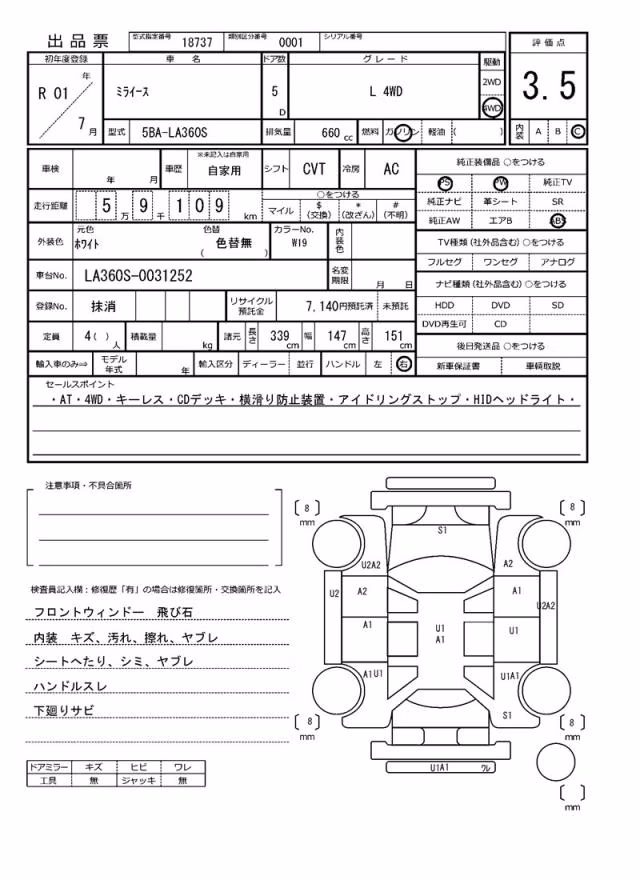 出品票 型式指定番号 18737 類別区分番号 0001 シリアル番号
初年度登録 車名 ドア数 グレード 駆動 評価点
R 01 年 7 月 ミライース 5 D L 4WD 2WD 4WD 3.5
型式 5BA-LA360S 排気量 660 cc 燃料 ガソリン 軽油 ( ) 内装 A B C
車検 年 月 車歴 ※未記入は自家用 自家用 シフト CVT 冷房 AC 純正装備品 ○をつける
PS PW 純正TV
走行距離 5 万 9 千 1 0 9 km ○をつける 純正ナビ 革シート SR
マイル $ (交換) * (改ざん) # (不明) 純正AW エアB ABS
外装色 元色 ホワイト 色替 ( 色替無 ) カラーNo. W19 内装色 TV種類 (社外品含む) ○をつける
フルセグ ワンセグ アナログ
車台No. LA360S-0031252 名変期限 月 日 ナビ種類 (社外品含む) ○をつける
登録No. 抹消 リサイクル預託金 7,140円預託済 未預託 HDD DVD SD
DVD再生可 CD
定員 4( ) 人 積載量 kg 諸元 長さ 339 cm 幅 147 cm 高さ 151 cm 後日発送品 ○をつける
輸入車のみ⇒ モデル年式 年 輸入区分 ディーラー 並行 ハンドル 左 右 新車保証書 車輌取説
セールスポイント
・AT・4WD・キーレス・CDデッキ・横滑り防止装置・アイドリングストップ・HIDヘッドライト・
注意事項・不具合箇所
検査員記入欄：修復歴「有」の場合は修復箇所・交換箇所を記入
フロントウィンドー 飛び石
内装 キズ、汚れ、擦れ、ヤブレ
シートへたり、シミ、ヤブレ
ハンドルスレ
下廻りサビ
ドアミラー キズ ヒビ ワレ
工具 無 ジャッキ 無
[ 8 ] mm S1 [ 8 ] mm
U2A2 A2
U2 A2 A1 U2A2
A1 U1 A1 U1
A1U1 U1A1
S1
[ 8 ] mm [ 8 ] mm
U1A1 ワレ
[ ] mm